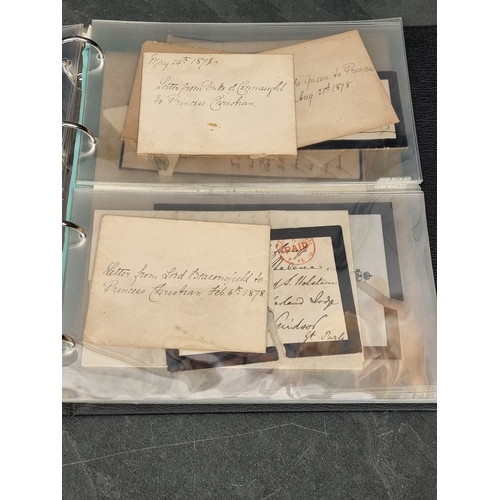 May 24th 1878
Letter from Duke of Connaught
to Princess Christian.
Queen to Princess
Aug 20th 1878
Letter from Lord Beaconsfield to
Princess Christian, Feb. 6th 1878
PAID
Helena,
S. Holstein
Lodge
Windsor
Gt Park